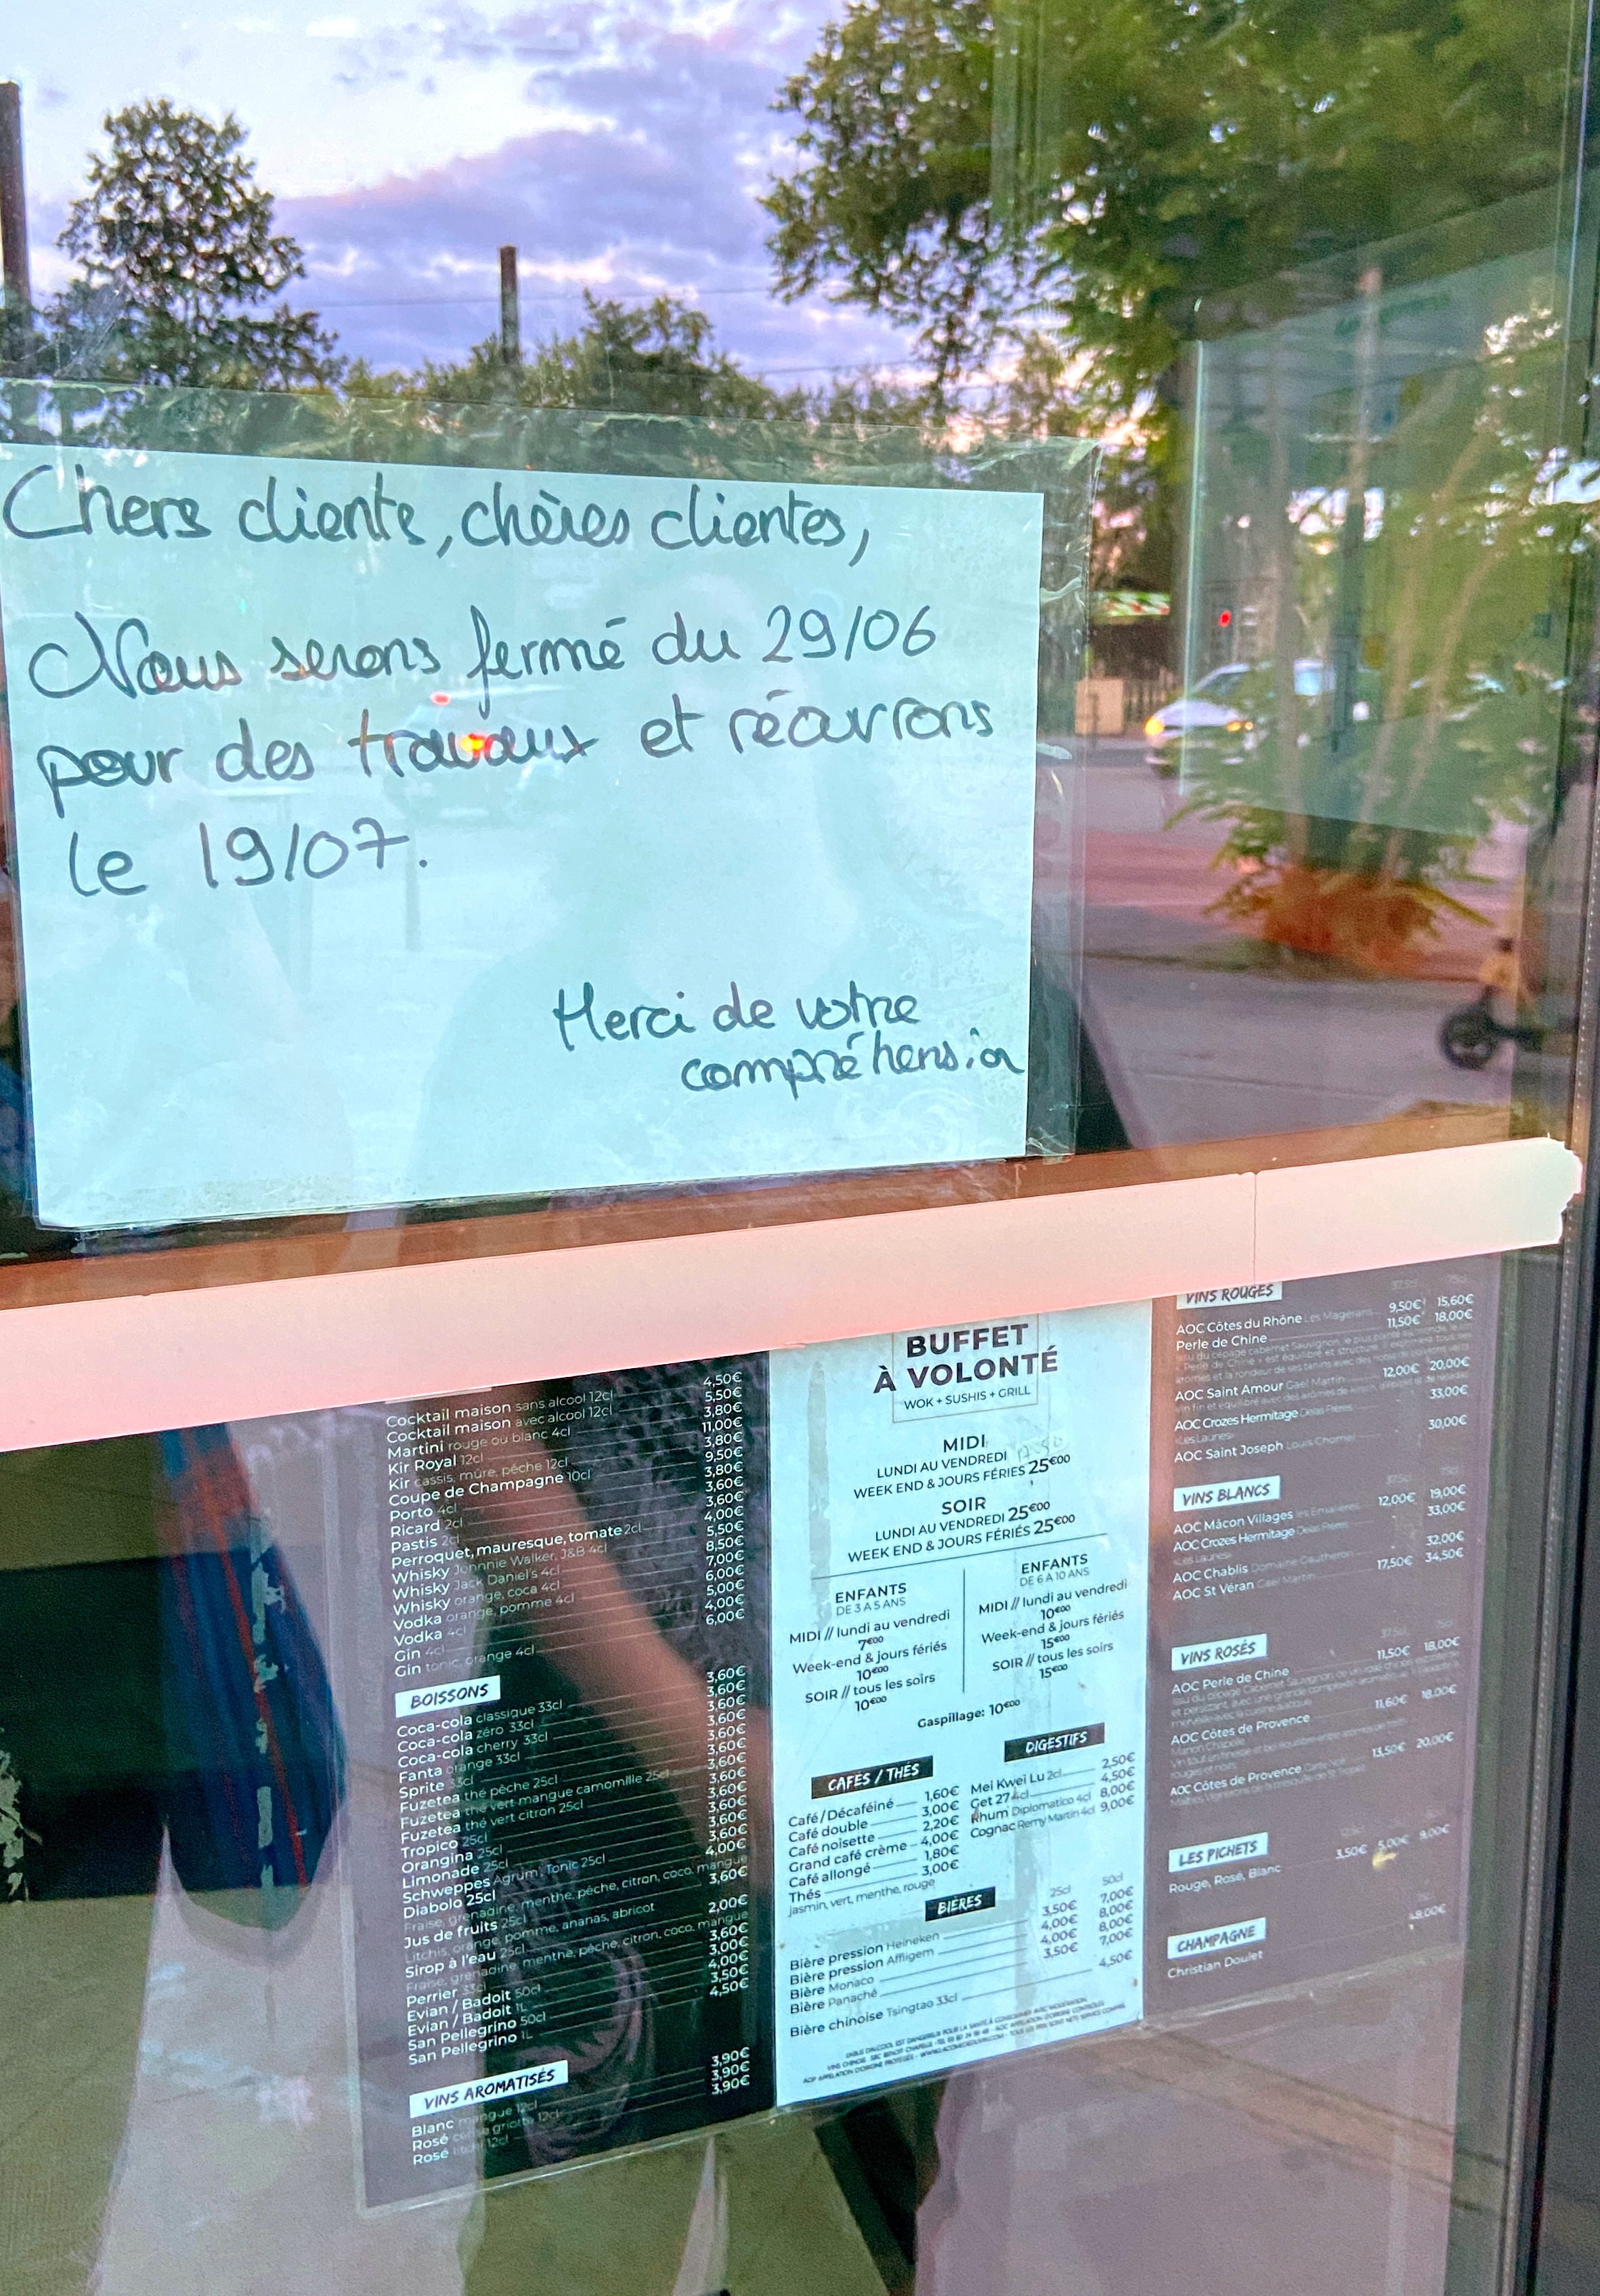 Chers clients, chères clientes,
Nous serons fermé du 29/06
pour des travaux et réouvrons
le 19/07.
Merci de votre
compréhension
4,50€
Cocktail maison sans alcool 12cl 5,50€
Cocktail maison avec alcool 12cl 3,80€
Martini rouge ou blanc 4cl 11,00€
Kir Royal 12cl 3,80€
Kir cassis, mûre, pêche 12cl 9,50€
Coupe de Champagne 10cl 3,80€
Porto 4cl 3,60€
Ricard 2cl 3,60€
Pastis 2cl 4,00€
Perroquet, mauresque, tomate 2cl 5,50€
Whisky Johnnie Walker, J&B 4cl 8,50€
Whisky Jack Daniel's 4cl 7,00€
Whisky orange, coca 4cl 6,00€
Vodka orange, pomme 4cl 5,00€
Vodka 4cl 4,00€
Gin 4cl 6,00€
Gin tonic, orange 4cl
BOISSONS
3,60€
Coca-cola classique 33cl 3,60€
Coca-cola zéro 33cl 3,60€
Coca-cola cherry 33cl 3,60€
Fanta orange 33cl 3,60€
Sprite 33cl 3,60€
Fuzetea thé pêche 25cl 3,60€
Fuzetea thé vert mangue camomille 25cl 3,60€
Fuzetea thé vert citron 25cl 3,60€
Tropico 25cl 3,60€
Orangina 25cl 3,60€
Limonade 25cl 3,60€
Schweppes Agrum, Tonic 25cl 4,00€
Diabolo 25cl
Fraise, grenadine, menthe, pêche, citron, coco, mangue
Jus de fruits 25cl 3,60€
Litchis, orange, pomme, ananas, abricot
Sirop à l'eau 25cl 2,00€
Fraise, grenadine, menthe, pêche, citron, coco, mangue
Perrier 33cl 3,60€
Evian / Badoit 50cl 3,00€
Evian / Badoit 1L 4,00€
San Pellegrino 50cl 3,50€
San Pellegrino 1L 4,50€
VINS AROMATISÉS
Blanc mangue 12cl 3,90€
Rosé griotte 12cl 3,90€
Rosé litchi 12cl 3,90€
BUFFET
À VOLONTÉ
WOK + SUSHIS + GRILL
MIDI
LUNDI AU VENDREDI
WEEK END & JOURS FÉRIES 25€00
SOIR
LUNDI AU VENDREDI 25€00
WEEK END & JOURS FÉRIÉS 25€00
ENFANTS
DE 3 À 5 ANS
MIDI // lundi au vendredi
7€00
Week-end & jours fériés
10€00
SOIR // tous les soirs
10€00
ENFANTS
DE 6 À 10 ANS
MIDI // lundi au vendredi
10€00
Week-end & jours fériés
15€00
SOIR // tous les soirs
15€00
Gaspillage: 10€00
CAFÉS / THÉS
Café/Décaféiné 1,60€
Café double 3,00€
Café noisette 2,20€
Grand café crème 4,00€
Café allongé 1,80€
Thés 3,00€
jasmin, vert, menthe, rouge
DIGESTIFS
Mei Kwei Lu 2cl 2,50€
Get 27 4cl 4,50€
Rhum Diplomatico 4cl 8,00€
Cognac Remy Martin 4cl 9,00€
BIÈRES
25cl 50cl
Bière pression Heineken 3,50€ 7,00€
Bière pression Affligem 4,00€ 8,00€
Bière Monaco 4,00€ 8,00€
Bière Panaché 3,50€ 7,00€
Bière chinoise Tsingtao 33cl 4,50€
VINS ROUGES
37,5cl 75cl
AOC Côtes du Rhône Les Magerans 9,50€ 15,60€
Perle de Chine 11,50€ 18,00€
AOC Saint Amour Gael Martin 12,00€ 20,00€
AOC Crozes Hermitage Delas Frères 33,00€
«Les Launes»
AOC Saint Joseph Louis Chomel 30,00€
VINS BLANCS
37,5cl 75cl
AOC Mâcon Villages 12,00€ 19,00€
AOC Crozes Hermitage Delas Frères 33,00€
«Les Launes»
AOC Chablis Domaine Gautheron 32,00€
AOC St Véran Gael Martin 17,50€ 34,50€
VINS ROSÉS
37,5cl 75cl
AOC Perle de Chine 11,50€ 18,00€
AOC Côtes de Provence 11,60€ 18,00€
AOC Côtes de Provence 13,50€ 20,00€
LES PICHETS
Rouge, Rosé, Blanc 3,50€ 5,00€ 9,00€
CHAMPAGNE
Christian Doulet 48,00€